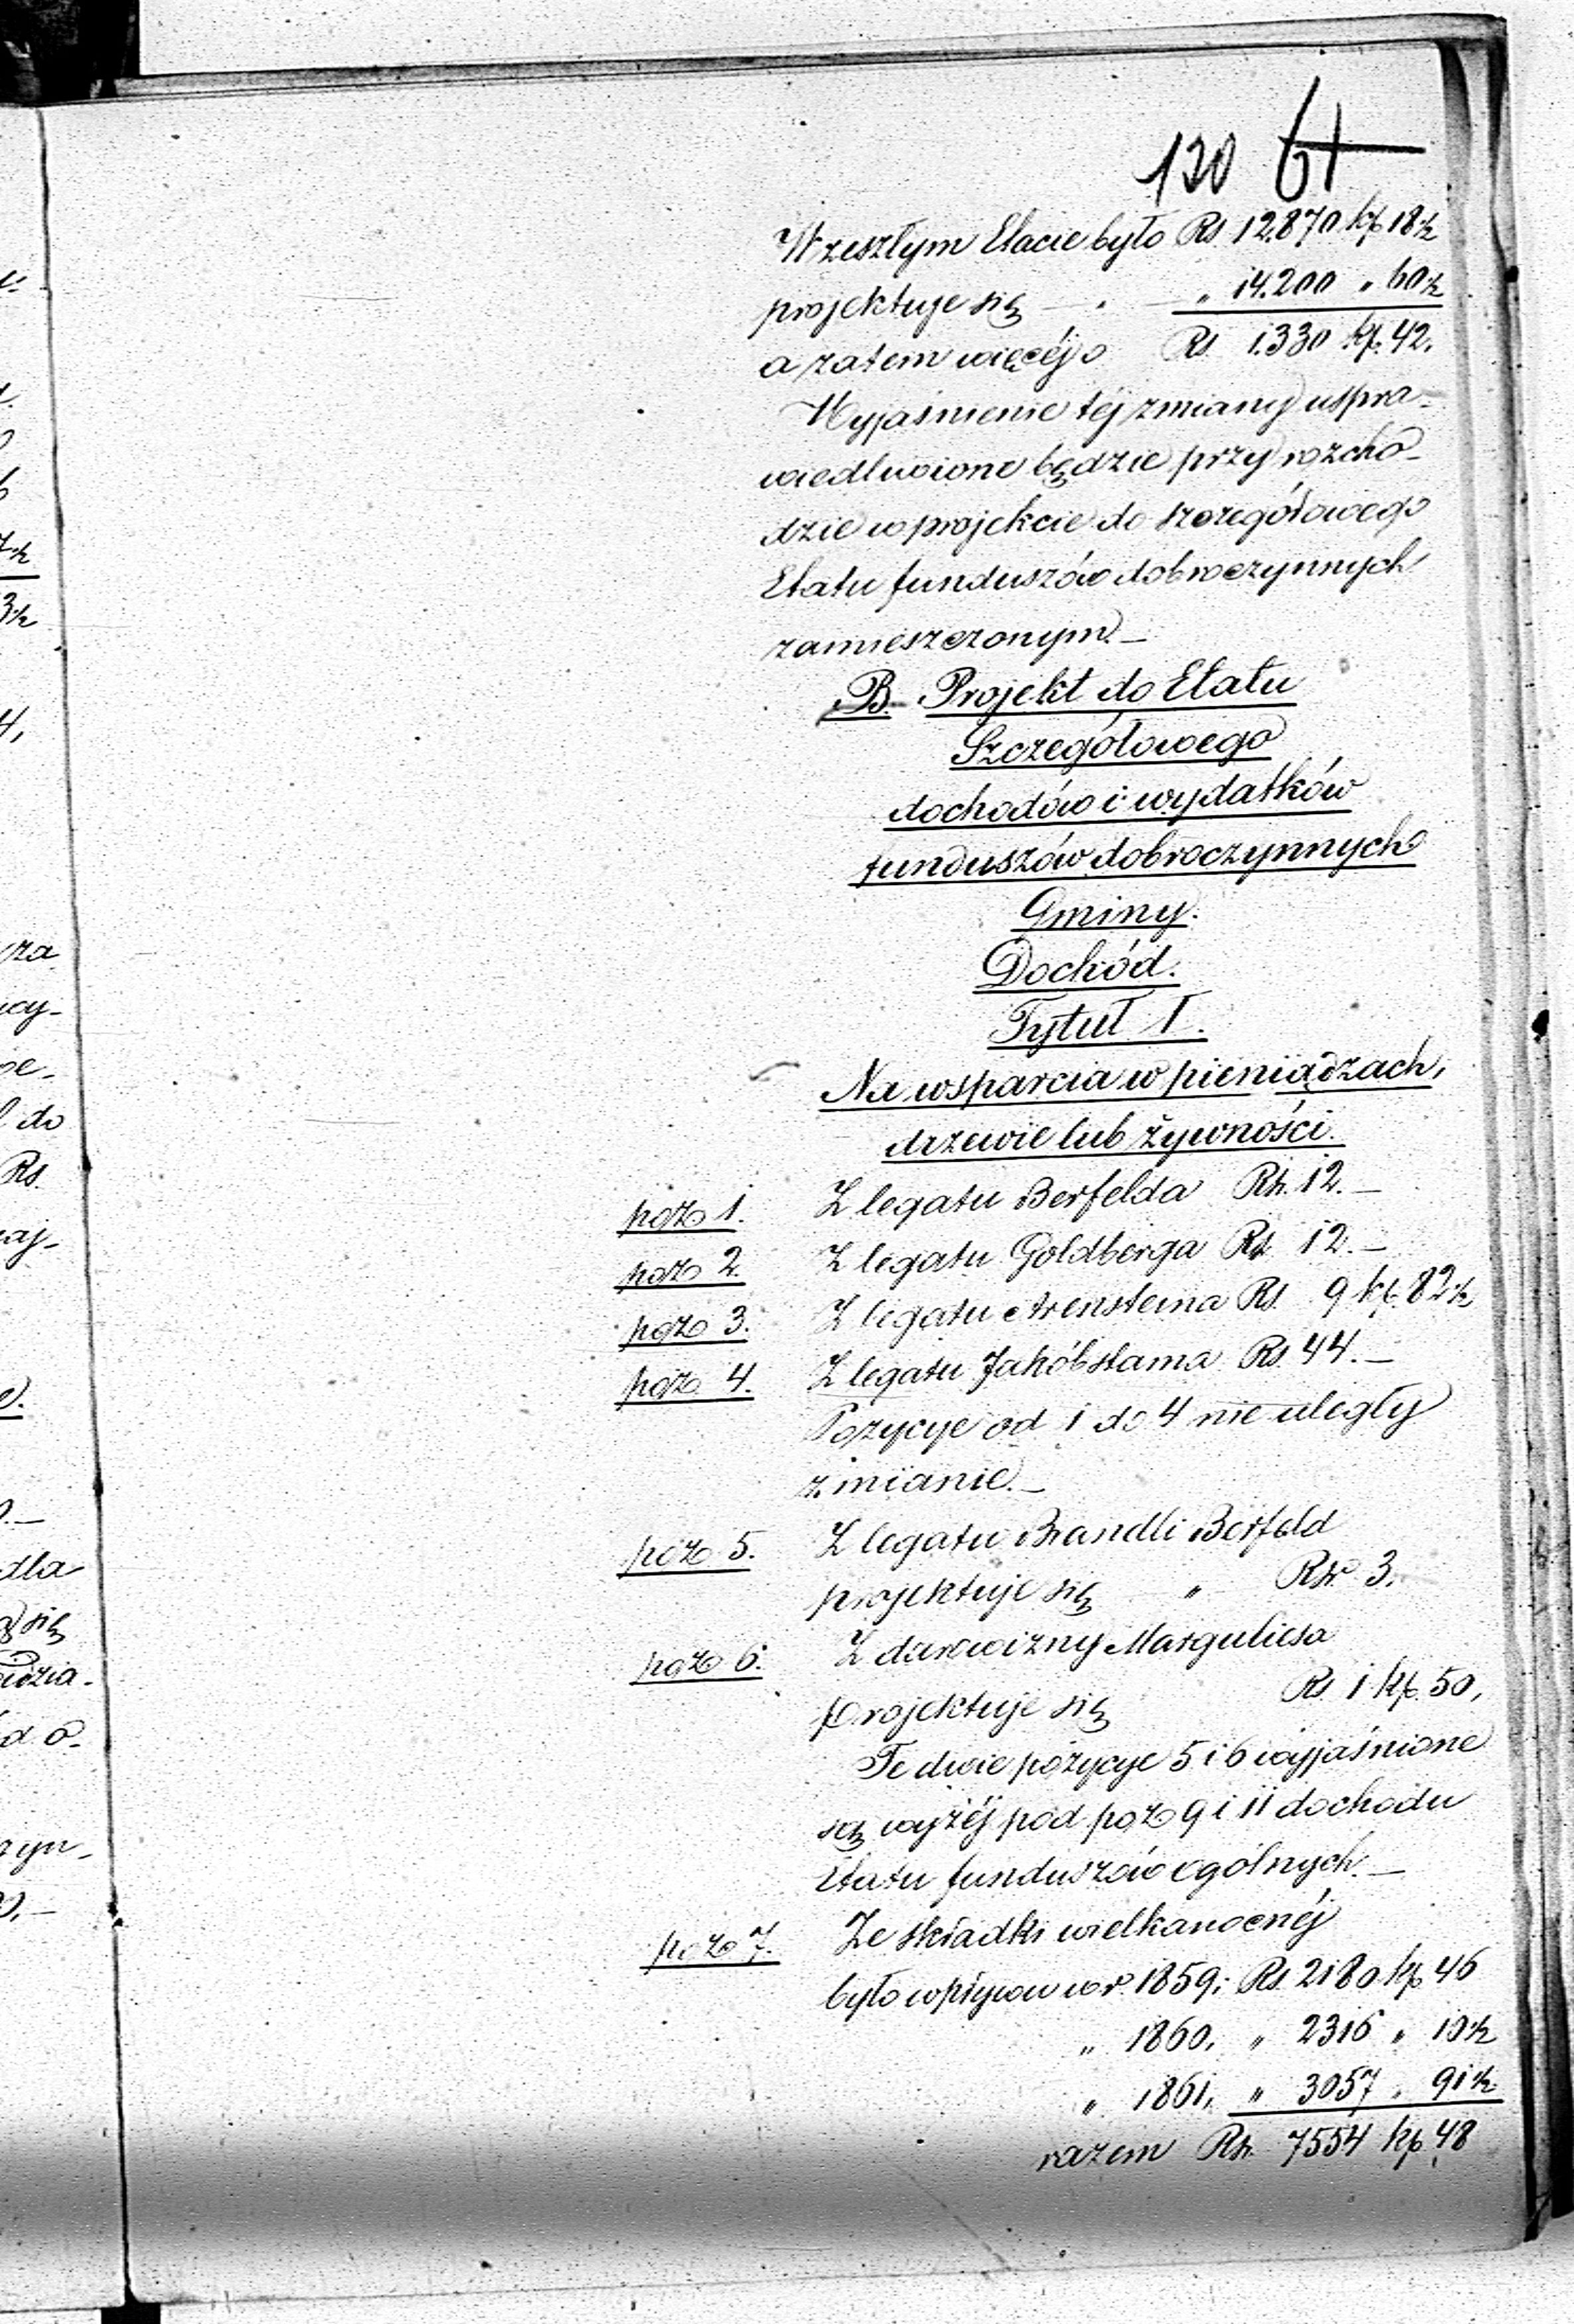 130 61
W zeszłym Etacie było Rs 12.870 kp 18½
projektuje się — „ — „ 14.200 „ 60½
a zatem więcéj o Rs. 1.330 kp. 42.
Wyjaśnienie téj zmiany uspra-
wiedliwione będzie przy rozcho-
dzie w projekcie do szczegółowego
Etatu funduszów dobroczynnych
zamieszczonym.—
B. Projekt do Etatu
Szczegółowego
dochodów i wydatków
funduszów dobroczynnych
Gminy.
Dochód.
Tytuł I.
Na wsparcia w pieniądzach,
drzewie lub żywności.
poz 1. Z legatu Berfelda Rs. 12.—
poz 2. Z legatu Goldberga Rs 12.—
poz 3. Z legatu Arensteina Rs. 9 kp. 82½
poz 4. Z legatu Jakóbstama Rs. 44.—
Pozycye od 1 do 4 nie uległy
zmianie.—
poz 5. Z legatu Brandli Berfeld
projektuje się „ Rsr. 3.
poz 6. Z darowizny Marguliesa
projektuje się Rs. 1 kp. 50,
Te dwie pozycye 5 i 6 wyjaśnione
są wyżéj pod poz 9 i 11 dochodu
Etatu funduszów ogólnych.—
poz 7. Ze składki wielkanocnéj
było wpływu w r. 1859; Rs. 2180 kp 46
„ 1860, „ 2316 „ 10½
„ 1861, „ 3057 „ 91½
razem Rsr. 7554 kp 48